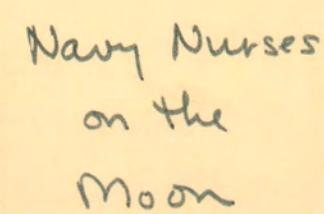 Navy Nurses
on the
Moon